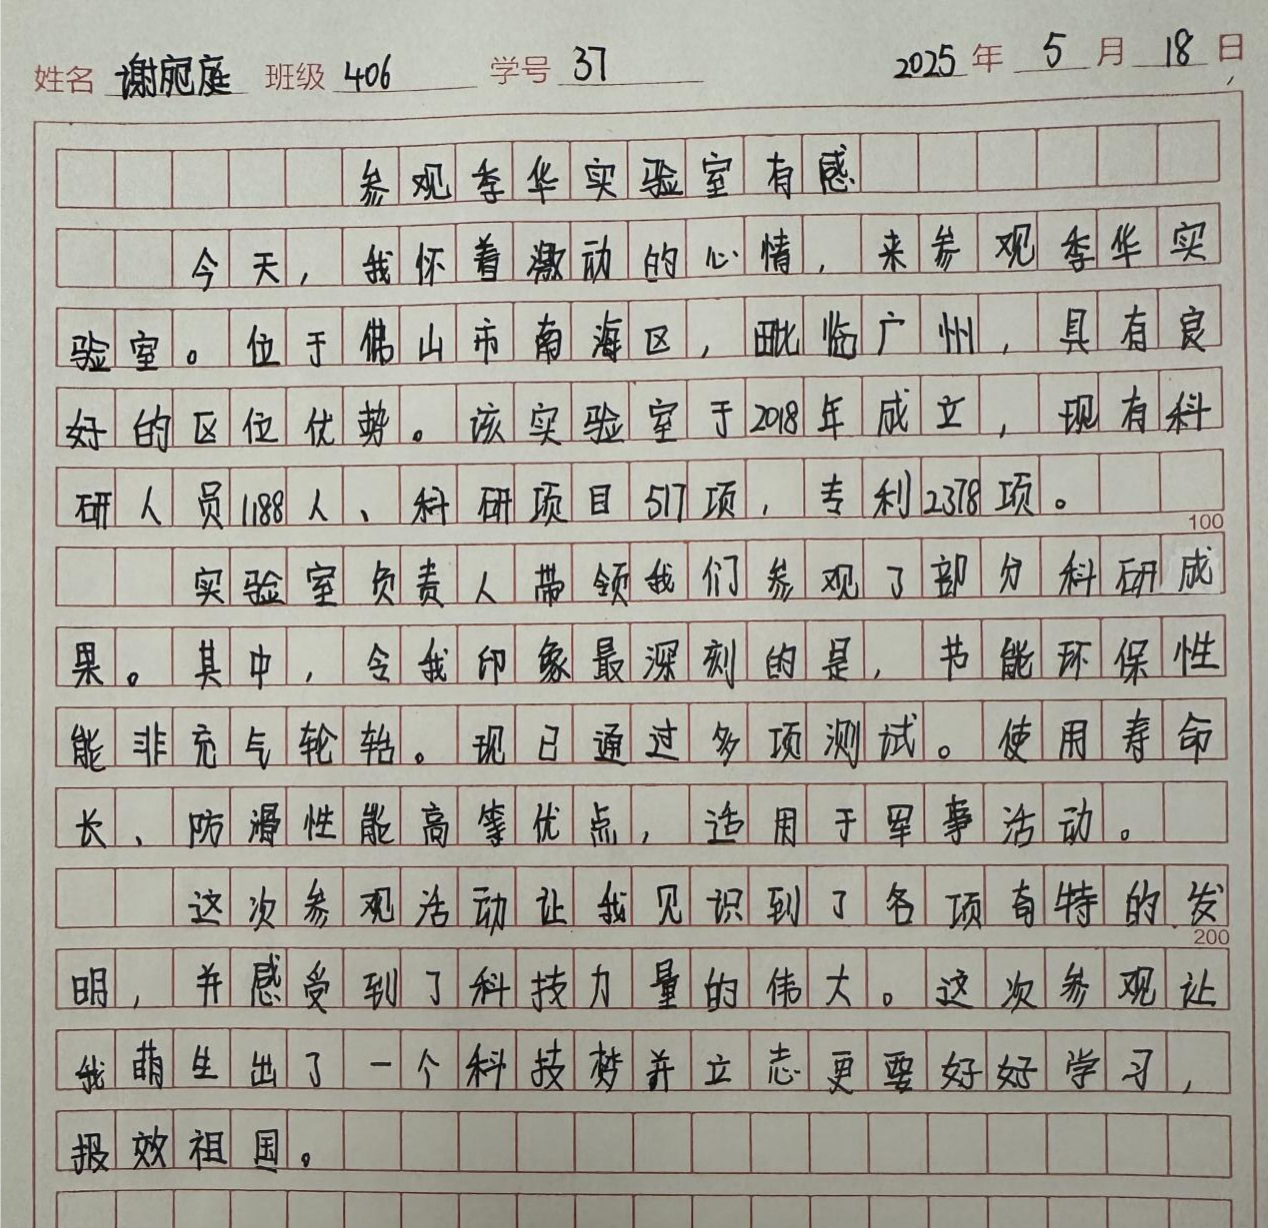 姓名 谢宛庭 班级 406 学号 37 2025 年 5 月 18 日
参观季华实验室有感
今天，我怀着激动的心情，来参观季华实
验室。位于佛山市南海区，毗临广州，具有良
好的区位优势。该实验室于2018年成立，现有科
研人员1188人、科研项目517项，专利2378项。
100
实验室负责人带领我们参观了部分科研成
果。其中，令我印象最深刻的是，节能环保性
能非充气轮轮胎。现已通过多项测试。使用寿命
长、防滑性能高等优点，适用于军事活动。
这次参观活动让我见识到了各项有特的发
200
明，并感受到了科技力量的伟大。这次参观让
我萌生出了一个科技梦并立志更要好好学习，
报效祖国。